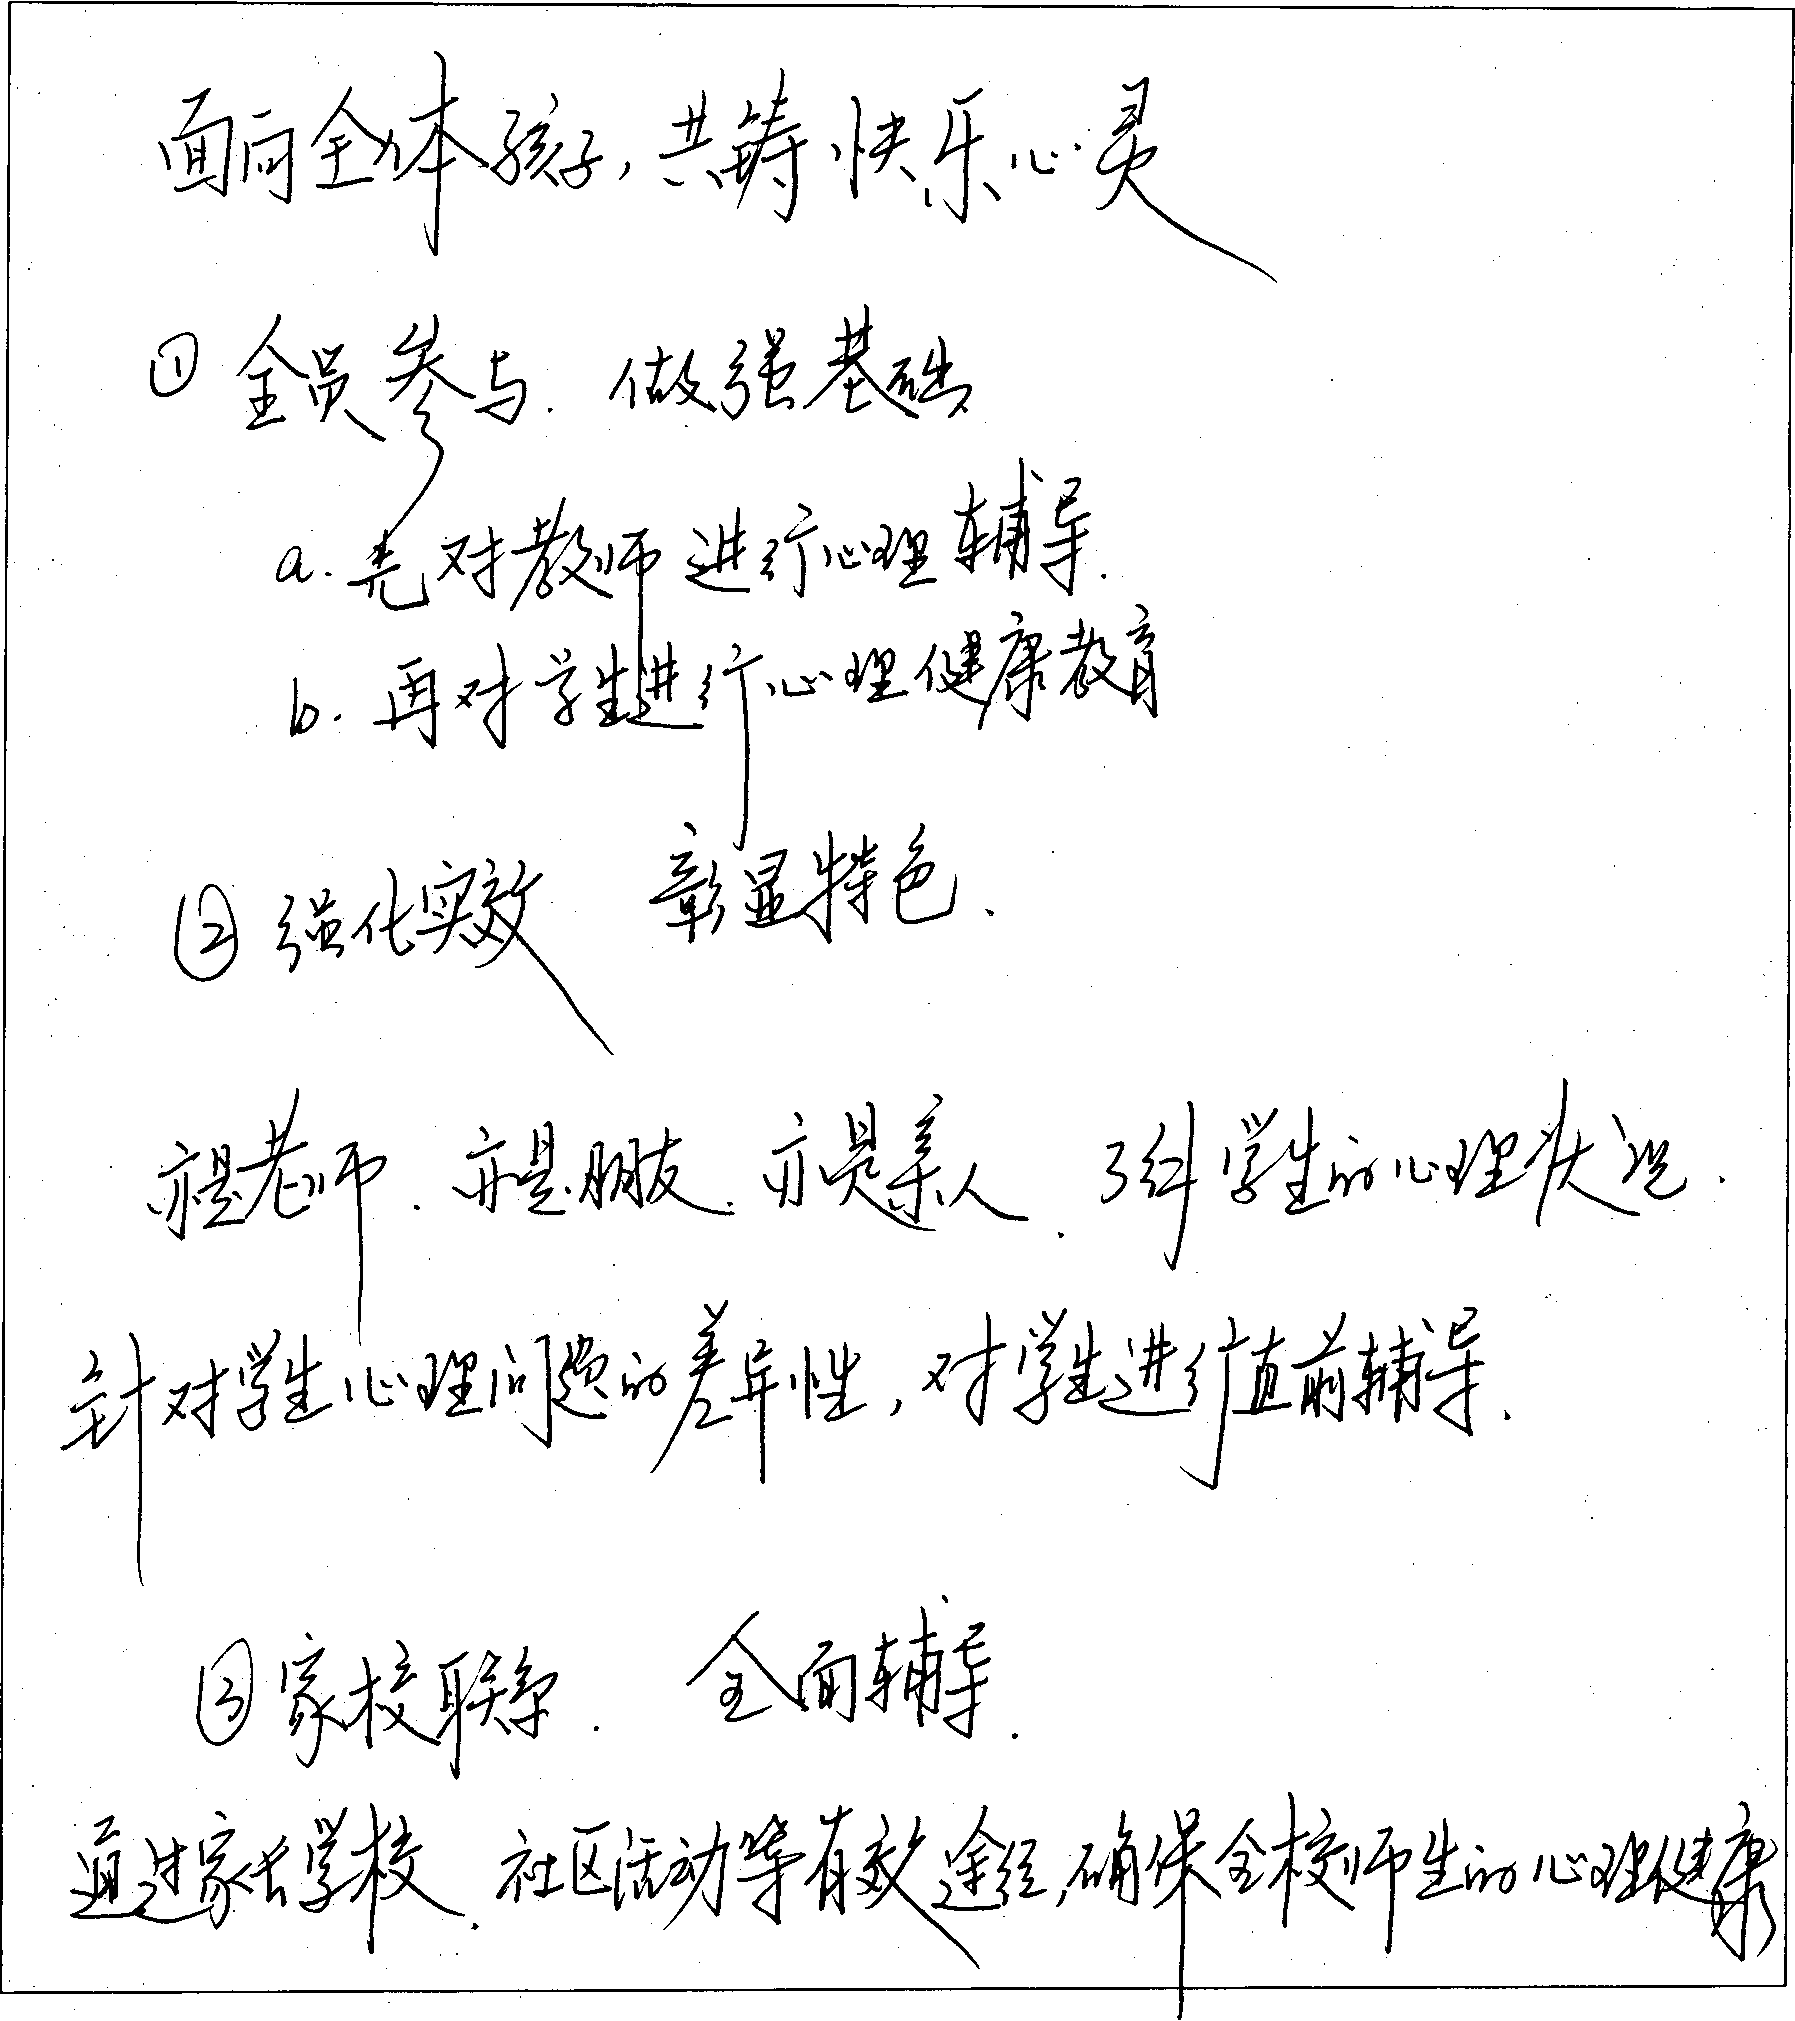 面向全体孩子,共铸快乐心灵
① 全员参与. 做强基础
a. 先对教师进行心理辅导.
b. 再对学生进行心理健康教育
② 强化实效 彰显特色.
亦是老师. 亦是朋友. 亦是亲人. 了解学生的心理状况.
针对学生心理问题的差异性,对学生进行直前辅导.
③ 家校联系. 全面辅导.
通过家长学校. 社区活动等有效途径,确保全校师生的心理健康